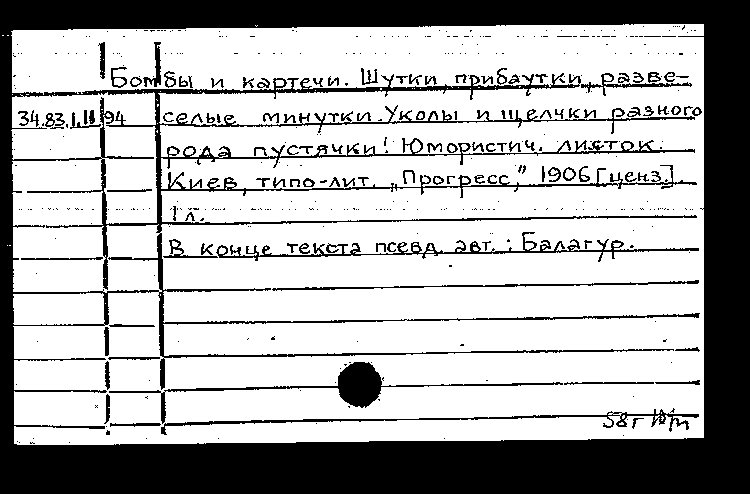 Бомбы и картечи. Шутки, прибаутки, разве-
34.83.1.11 94 селые минутки. Уколы и щелчки разного
рода пустячки! Юмористич. листок.
Киев, типо-лит. „Прогресс," 1906 [ценз.].
1 л.
В конце текста псевд. авт.: Балагур.
58г